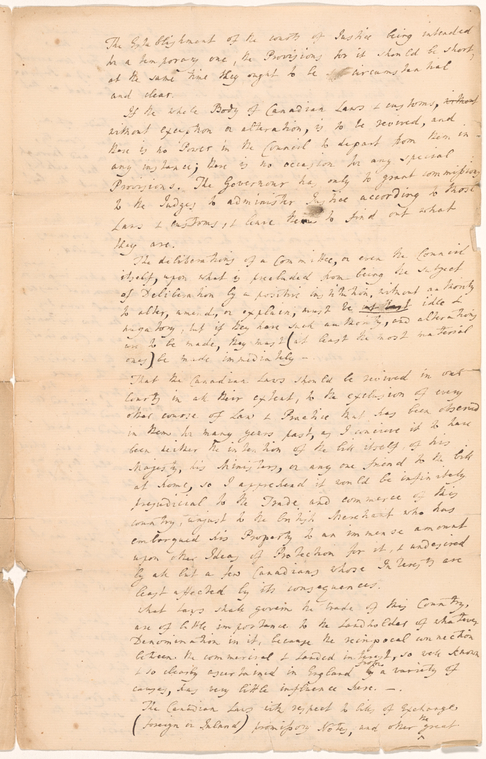 The Establishment of the courts of Justice being intended
for a temporary one, the Provisions for it should be short,
at the same time they ought to be circumstantial
and clear.
If the whole Body of Canadian Laws & customs, without
without exception or alteration, is to be revived, and
there is no Power in the Council to depart from them in
any instance; there is no occasion for any special
Provisions. The Governour has only to grant commissions
to the Judges to administer Justice according to those
Laws & customs, & leave them to find out what
they are.
The deliberations of a Committee, or even the Council
itself, upon what is precluded from being the subject
of Deliberation by a positive institution, without authority
to alter, amend, or explain, must be idle &
nugatory; but if they have such authority, and alterations
are to be made, they must (at least the most material
ones) be made immediately —
That the Canadian Laws should be revived in our
Courts in all their extent, to the exclusion of every
other course of Law & Practice that has been observed
in them for many years past, as I conceive it to have
been neither the intention of the bill itself, of his
Majesty, his Ministers, or any one friend to the bill
at home, so I apprehend it would be infinitely
prejudicial to the Trade and commerce of this
country, unjust to the British Merchant who has
embarqued his Property to an immense amount
upon other Ideas of Protection for it, & undesired
by all but a few Canadians whose Interests are
least affected by its consequences.
What laws shall govern the trade of this Country,
are of little importance to the Landholder of whatever
Denomination in it, because the reciprocal connection
between the commercial & Landed interest, so well known
& so clearly ascertained in England from a variety of
causes, has very little influence here. —
The Canadian Laws with respect to bills of Exchange
(foreign or Inland) promissory Notes, and other the great